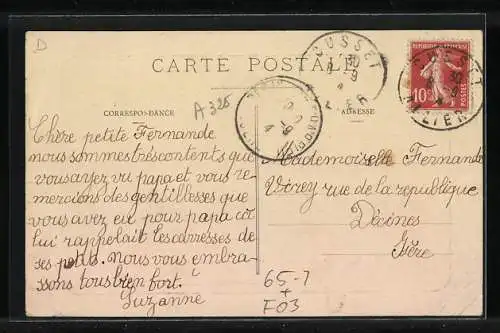 D
CARTE POSTALE
CORRESPONDANCE
ADRESSE
A 325
CUSSET
ALLIER
CUSSET
ALLIER
REPUBLIQUE FRANÇAISE
10c
POSTES
Chère petite Fernande
nous sommes très contents que
vous ayez vu papa et vous re-
mercions des gentillesses que
vous avez eu pour papa ca
lui rappelait les caresses de
ses petits. nous vous embra-
ssons tous bien fort.
Suzanne
Mademoiselle Fernande
Virey rue de la république
Décines
Isère
65-7
+
F03